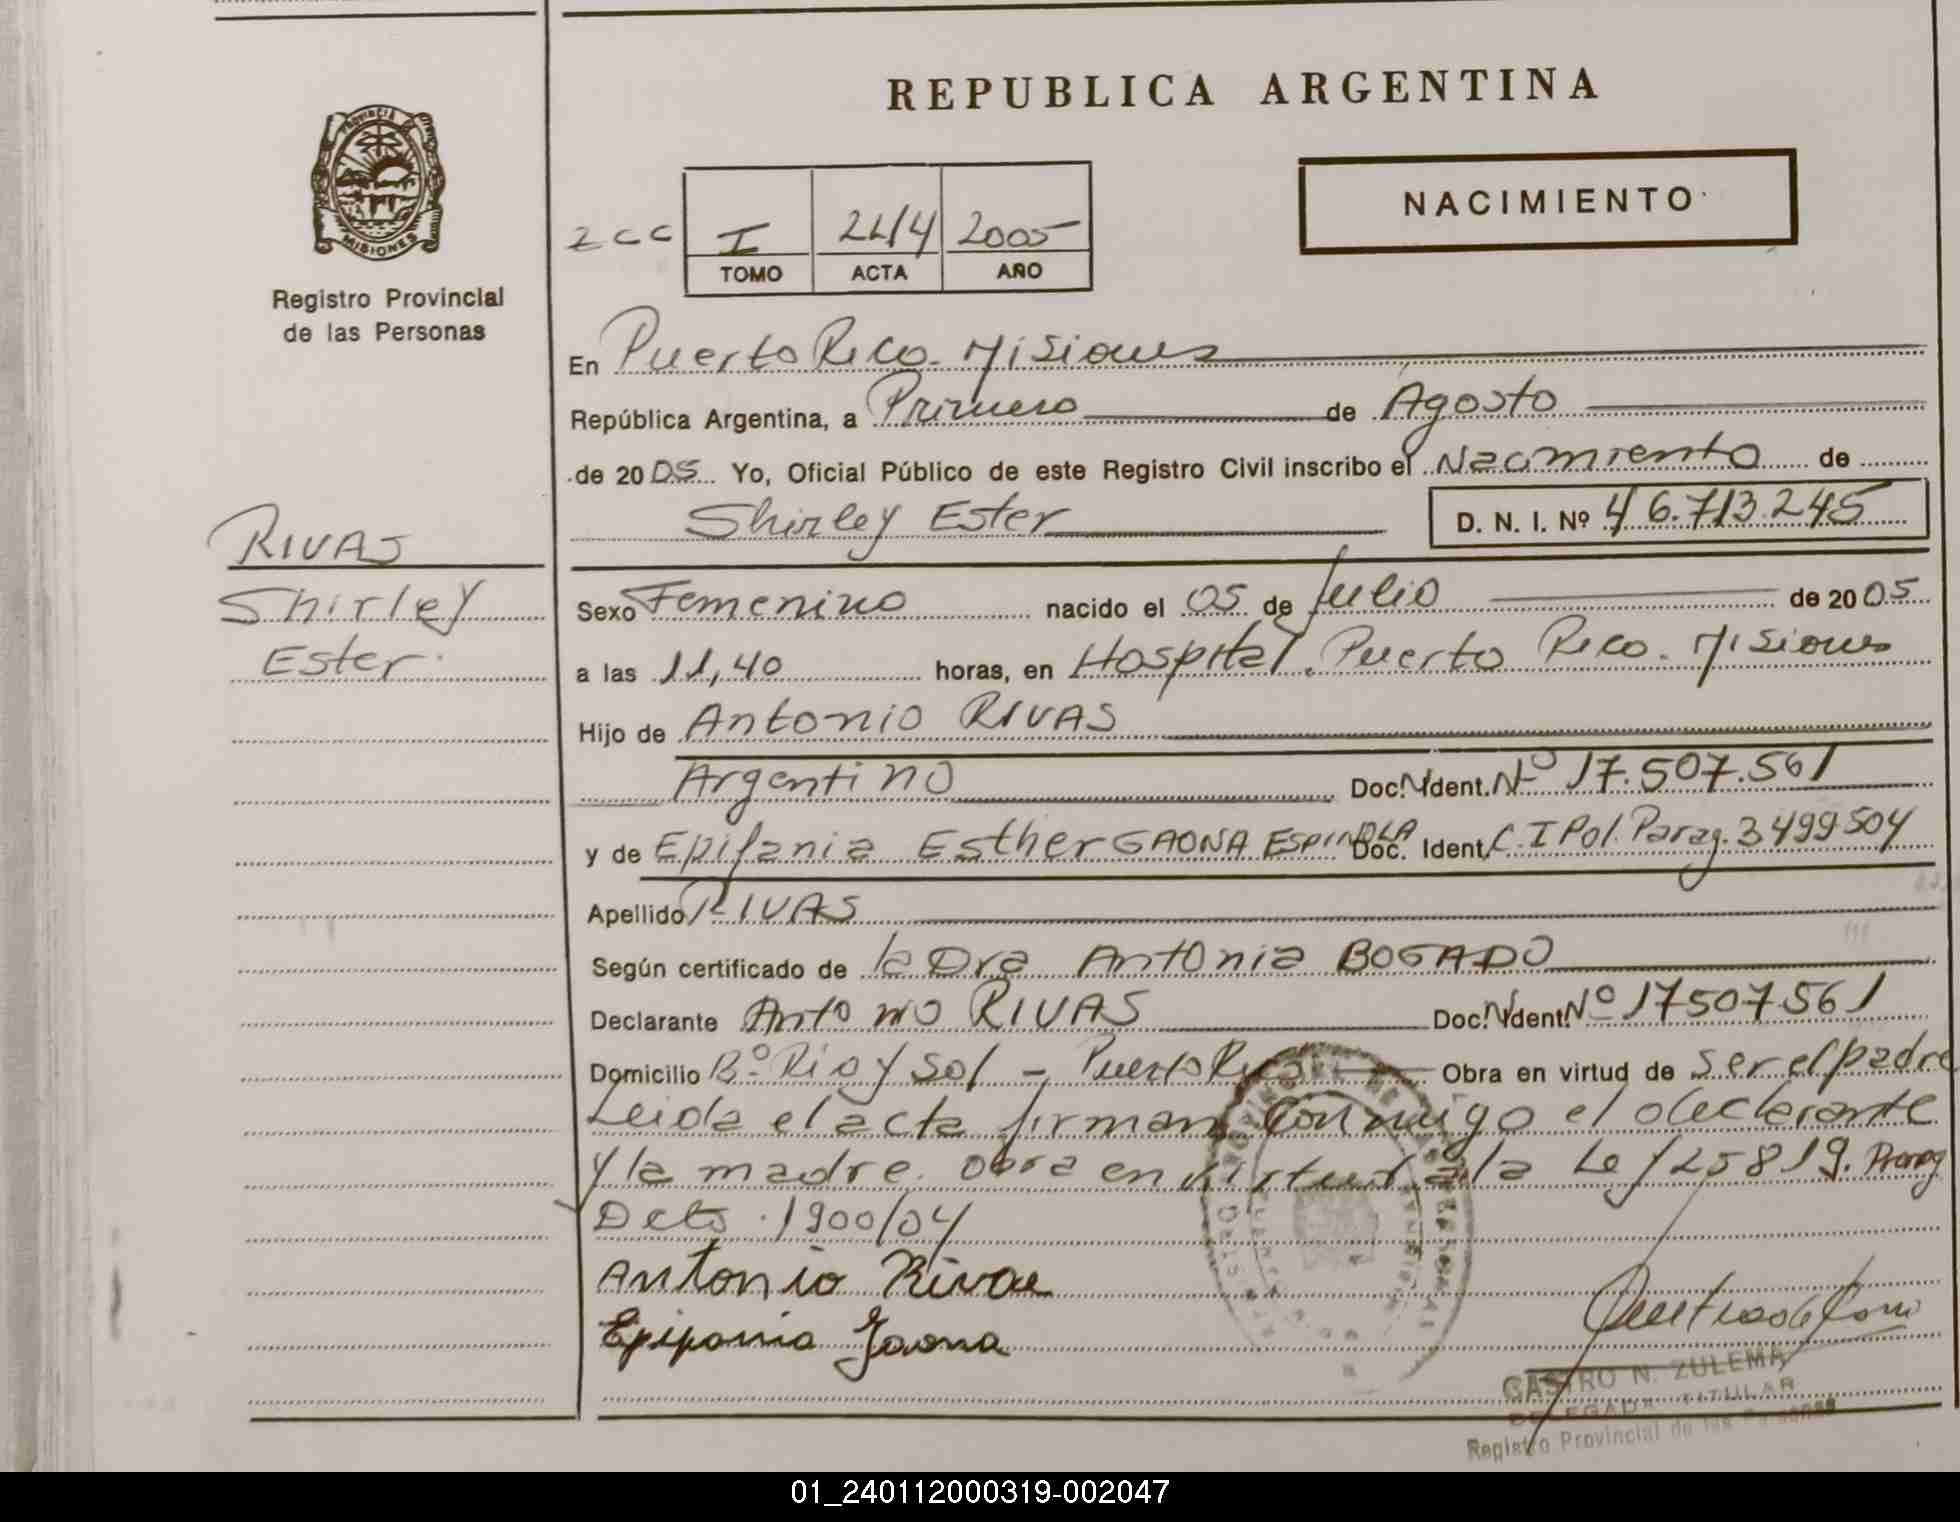 REPUBLICA ARGENTINA
PROVINCIA DE
MISIONES
Registro Provincial
de las Personas
NACIMIENTO
I 2005
TOMO ACTA AÑO
En Puerto Rico. Misiones
República Argentina, a Primero de Agosto
de 2005 Yo, Oficial Público de este Registro Civil inscribo el Nacimiento de
Shirley Ester D. N. I. Nº 46.713.245
RIVAS
Shirley
Ester.
Sexo Femenino nacido el 05 de Julio de 2005
a las 11,40 horas, en Hospital. Puerto Rico. Misiones
Hijo de Antonio RIVAS
Argentino Doc. N. Ident. Nº 17.507.561
y de Epifania Esther GAONA ESPINDOLA Doc. Ident. C.I Pol. Parag. 3499504
Apellido RIVAS
Según certificado de la Dra Antonia BOGADO
Declarante Antonio RIVAS Doc. N. Ident. Nº 17507.561
Domicilio Bº Rio y Sol - Puerto Rico Obra en virtud de ser el padre
Leida el acta firman conmigo el declarante
y la madre. Obra en virtud a la Ley 25819. Prorrog
Dcto. 1900/04
Antonio Rivas
Epifania Gaona
CASTRO N. ZULEMA
DELEGADA TITULAR
Registro Provincial de las Personas
01_240112000319-002047